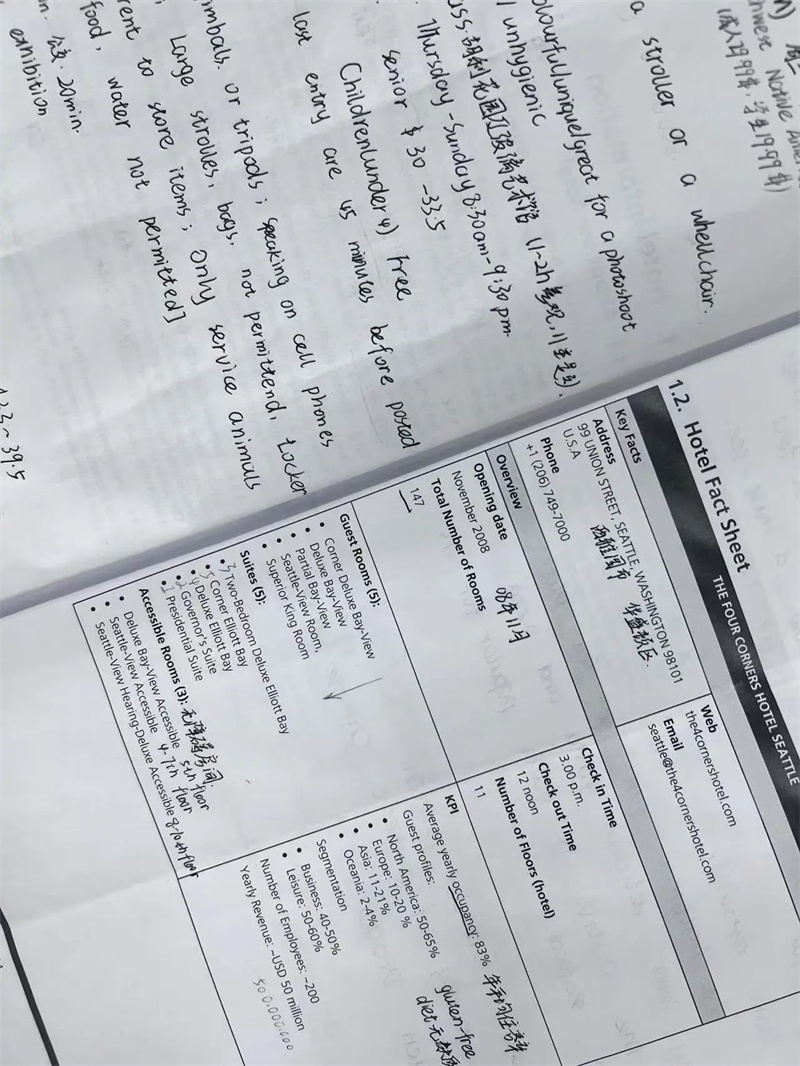 (成人29.99$, 学生19.99$)
a stroller or a wheelchair.
colourful/unique/great for a photoshoot
unhygienic
Thursday-Sunday 8:30am-9:30pm.
senior $30-33.5
Children(under 4) free
last entry are 45 minutes before posted
or tripods; speaking on cell phones
Large strolles, bags, not permittend, Locker
rent to store items; only service animals
food, water not permitted]
20min.
exhibition
1.2. Hotel Fact Sheet
THE FOUR CORNERS HOTEL SEATTLE
Key Facts
Address
99 UNION STREET, SEATTLE, WASHINGTON 98101
U.S.A
西雅图市 华盛顿区.
Phone
+1 (206) 749-7000
Web
the4cornershotel.com
Email
seattle@the4cornershotel.com
Overview
Opening date
November 2008 08年11月
Total Number of Rooms
147
Check in Time
3.00 p.m.
Check out Time
12 noon
Number of Floors (hotel)
11
Guest Rooms (5):
• Corner Deluxe Bay-View
• Deluxe Bay-View
• Partial Bay-View
• Seattle-View Room,
• Superior King Room
Suites (5):
• Two-Bedroom Deluxe Elliott Bay
• Corner Elliott Bay
• Deluxe Elliott Bay
• Governor's Suite
• Presidential Suite
Accessible Rooms (3): 无障碍房间:
• Deluxe Bay-View Accessible 5th floor
• Seattle-View Accessible 4-7th floor
• Seattle-View Hearing-Deluxe Accessible 8-10th floor
KPI
Average yearly occupancy: 83% 年平均住客率.
Guest profiles:
• North America: 50-65%
• Europe: 10-20 %
• Asia: 11-21%
• Oceania: 2-4%
gluten-free
diet
Segmentation
• Business: 40-50%
• Leisure: 50-60%
Number of Employees: ~200
Yearly Revenue: ~USD 50 million
500.000.000